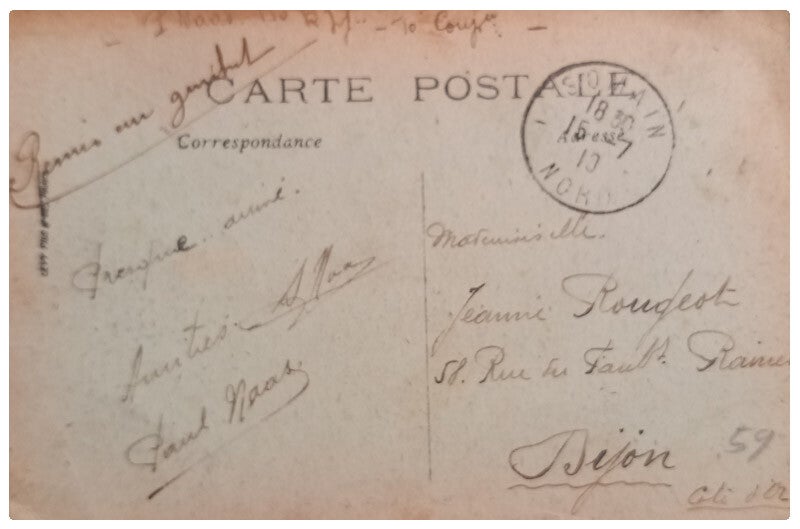 10 Comp
Remis au
CARTE POSTALE
Correspondance
Adresse
SOMAIN
18 30
15 -7
19
NORD
Presque arrivé.
Amitiés.
Paul Naas
Mademoiselle.
Jeanne Rougeot
58. Rue du Faubg. Raines
Dijon
59
Côte d'Or